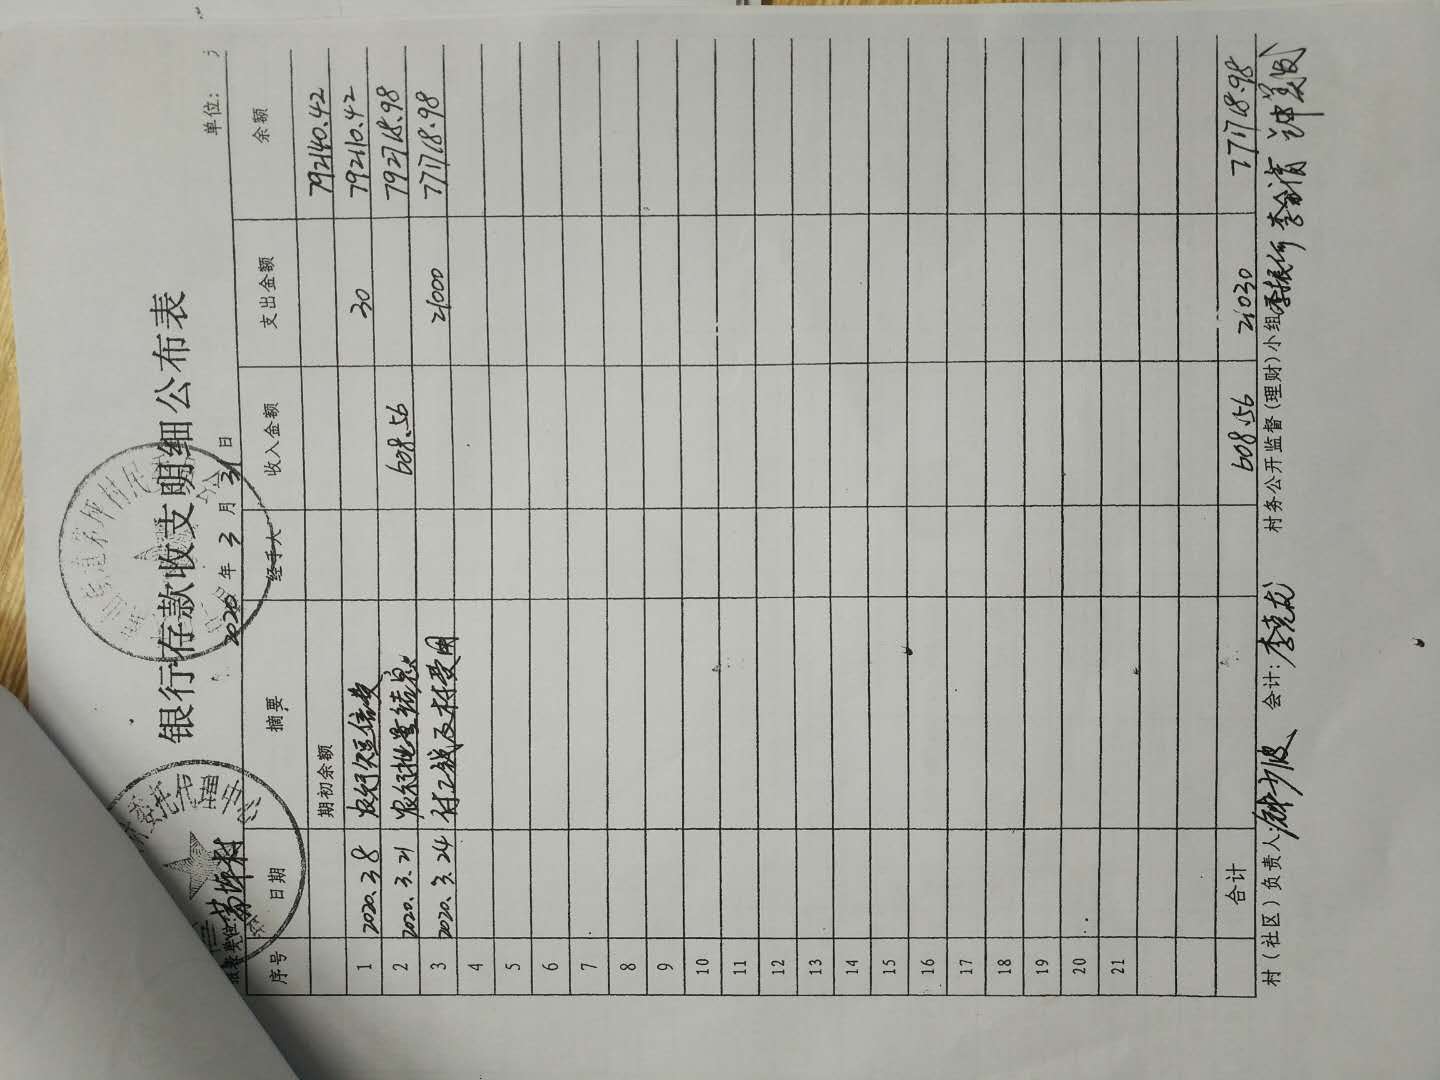 银行存款收支明细公布表
2020年3月31日
单位:
序号 日期 摘要 经手人 收入金额 支出金额 余额
期初余额 792140.42
1 2020.3.8 农行欠短信费 30 792110.42
2 2020.3.21 农行批量结息 608.56 792718.98
3 2020.3.24 付工钱及材费用 21000 771718.98
4
5
6
7
8
9
10
11
12
13
14
15
16
17
18
19
20
21
合计 608.56 21030 771718.98
村(社区)负责人: 会计:李克龙 村务公开监督(理财)小组: